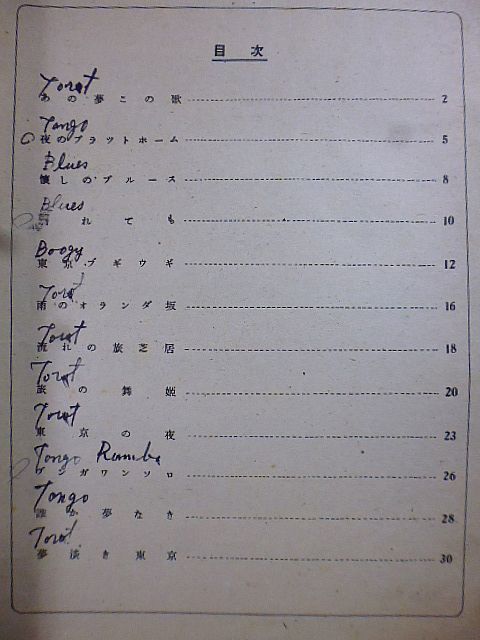 目次
Torot
あの夢この歌 2
Tango
夜のプラットホーム 5
Blues
懐しのブルース 8
Blues
れても 10
Boogy
東京ブギウギ 12
Torot
雨のオランダ坂 16
Torot
流れの旅芝居 18
Torot
旅の舞姫 20
Torot
東京の夜 23
Tango Rumba
ブンガワンソロ 26
Tango
誰か夢なき 28
Torot
夢淡き東京 30